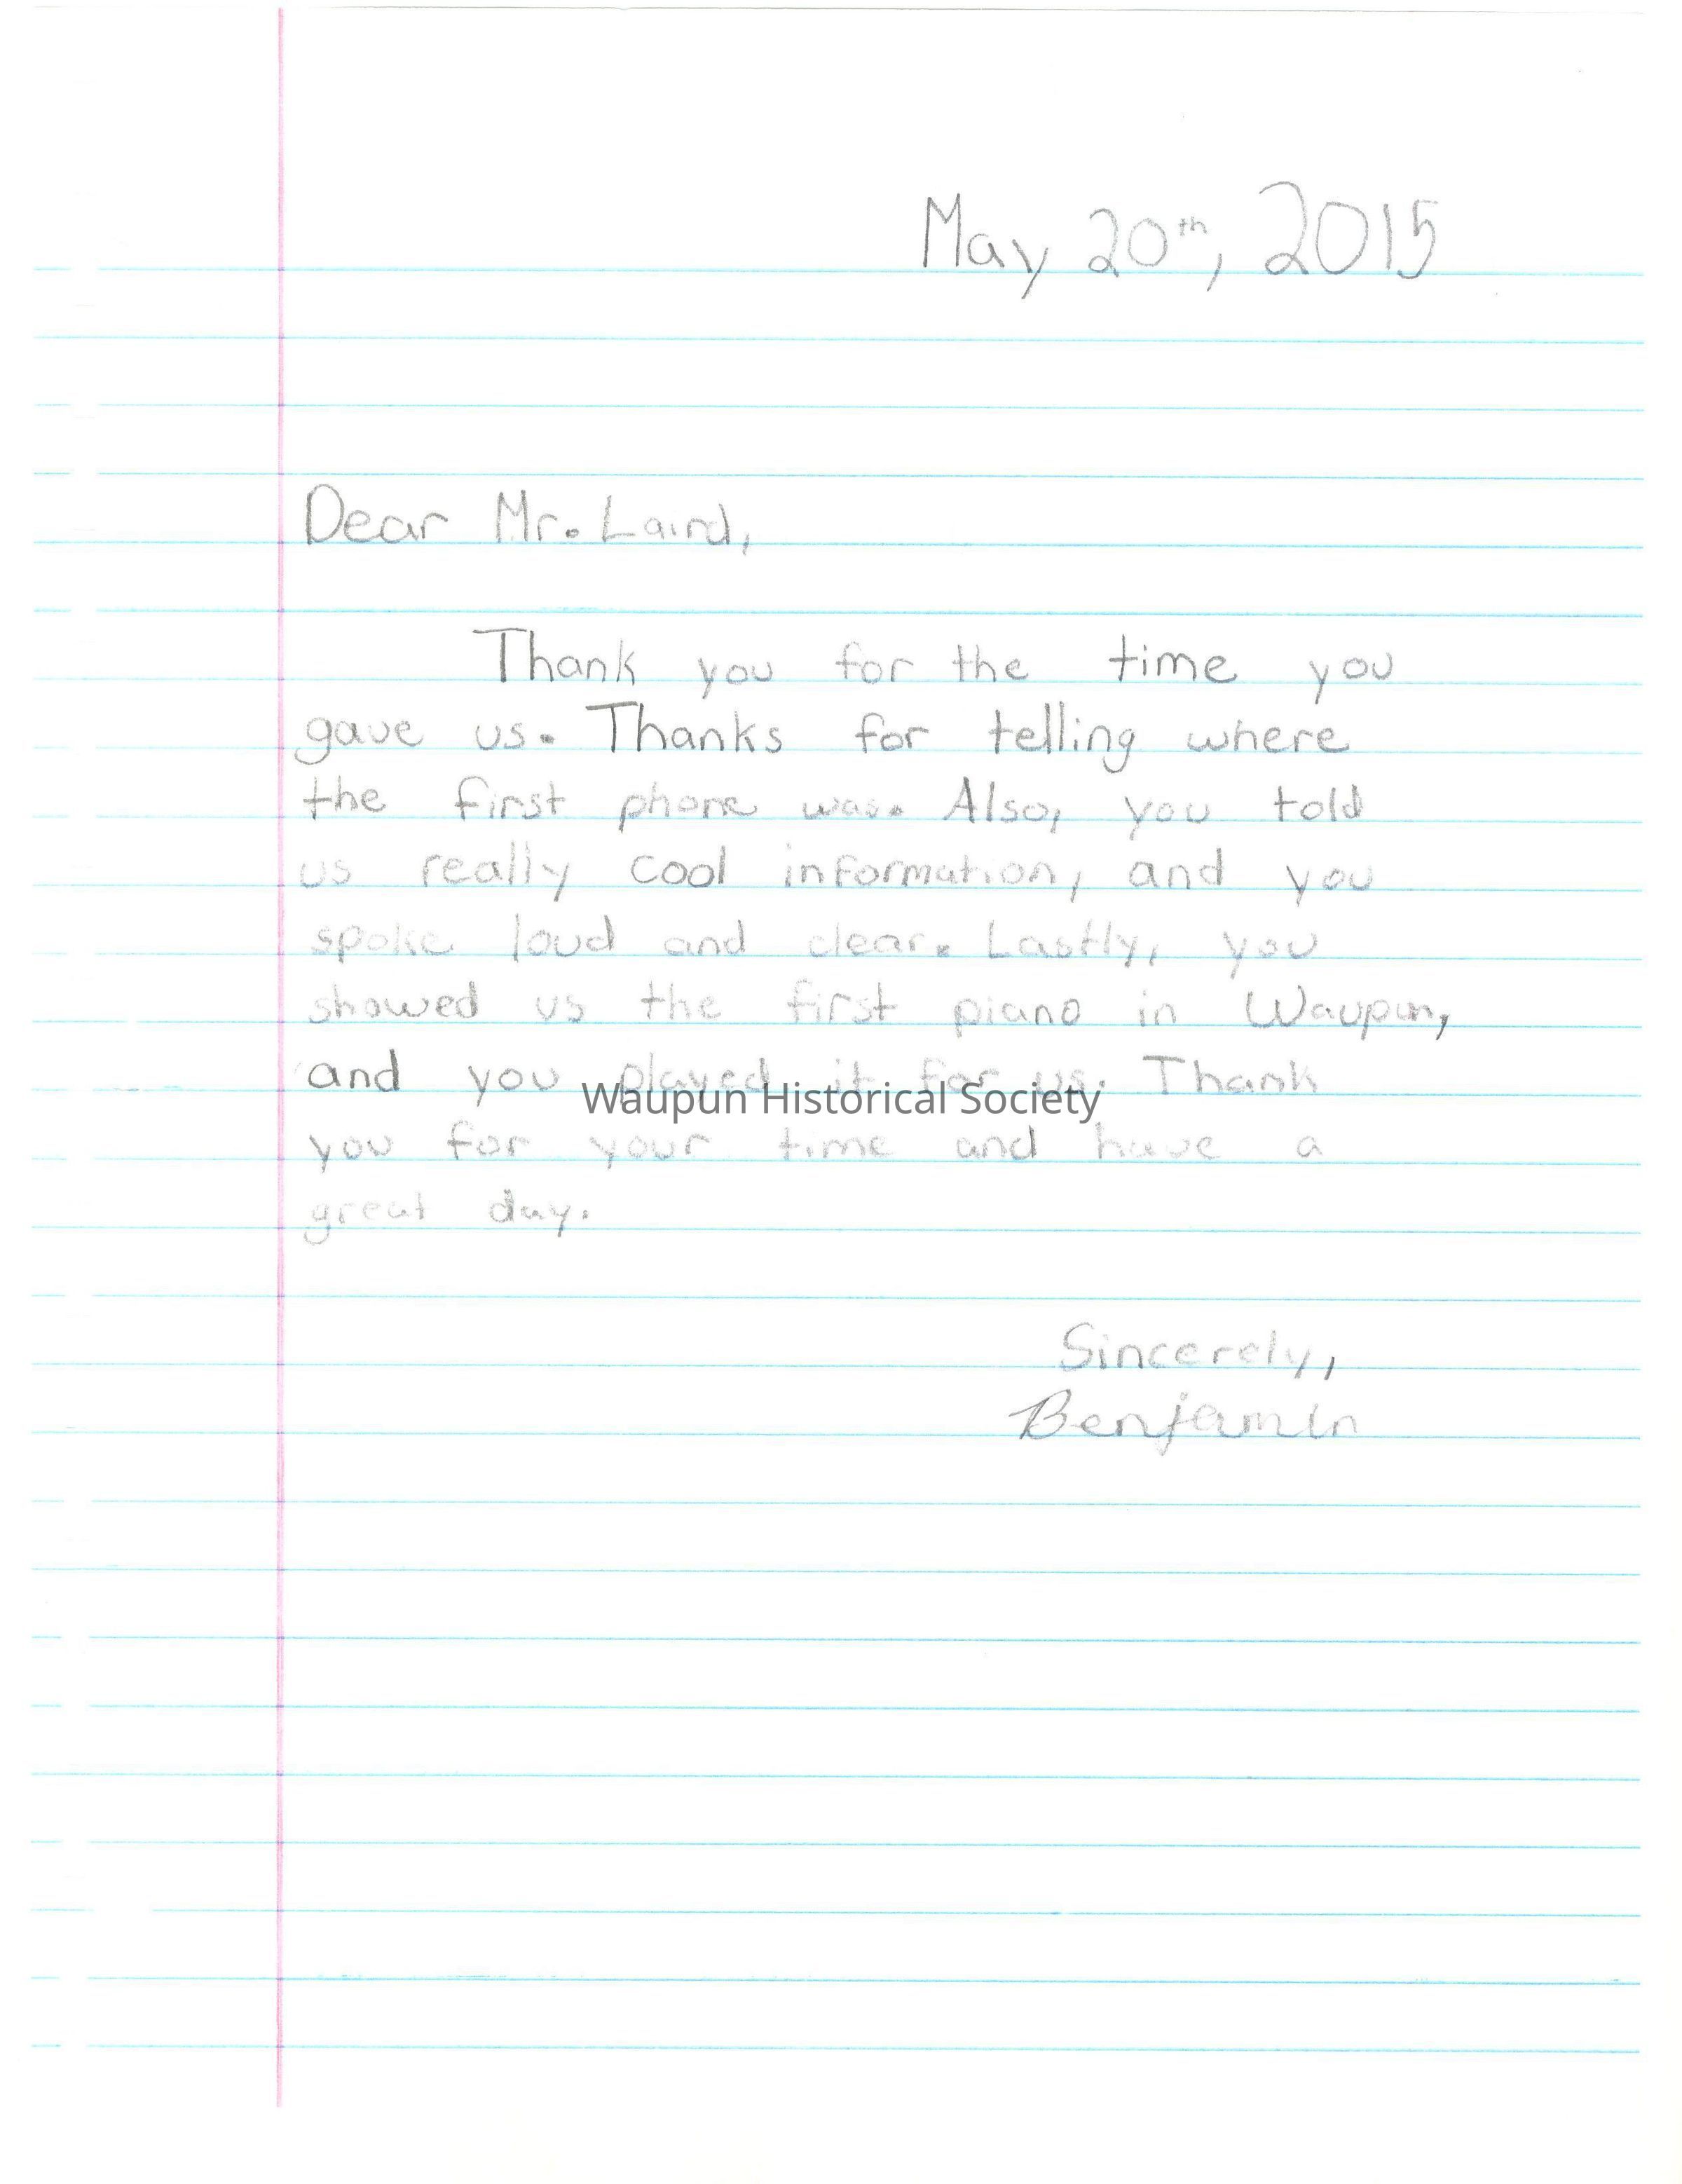 May 20th, 2015
Dear Mr. Laird,
Thank you for the time you
gave us. Thanks for telling where
the first phone was. Also, you told
us really cool information, and you
spoke loud and clear. Lastly, you
showed us the first piano in Waupun,
and you played it for us. Thank
Waupun Historical Society
you for your time and have a
great day.
Sincerely,
Benjamin